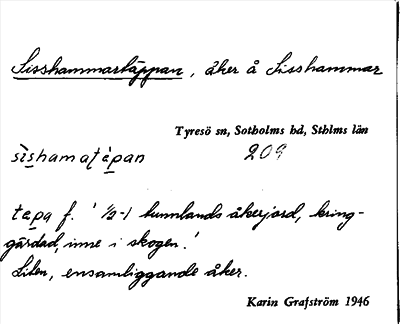 Sisshammartäppan, åker å Sisshammar
Tyresö sn, Sotholms hd, Sthlms län
sìshamatépan 209
tepa f. ' ½-1 tunnlands åkerjord, kring-
gärdad, inne i skogen.'
Liten, ensamliggande åker.
Karin Grafström 1946